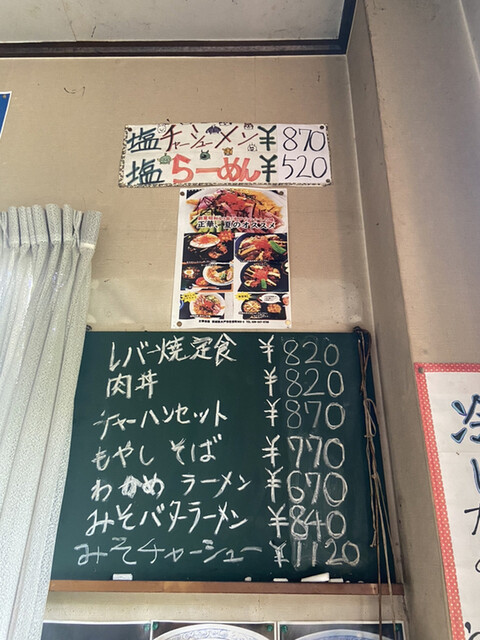 塩チャーシューメン ¥870
塩らーめん ¥520
正華 のオススメ
レバー焼定食 ¥820
肉丼 ¥820
チャーハンセット ¥870
もやしそば ¥770
わかめラーメン ¥670
みそバターラーメン ¥840
みそチャーシュー ¥1120
冷